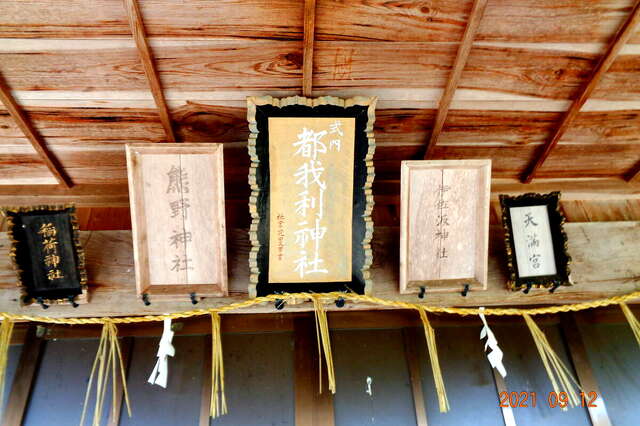 稲荷神社
熊野神社
式内
都我利神社
伊佐波神社
天満宮
2021 09 12